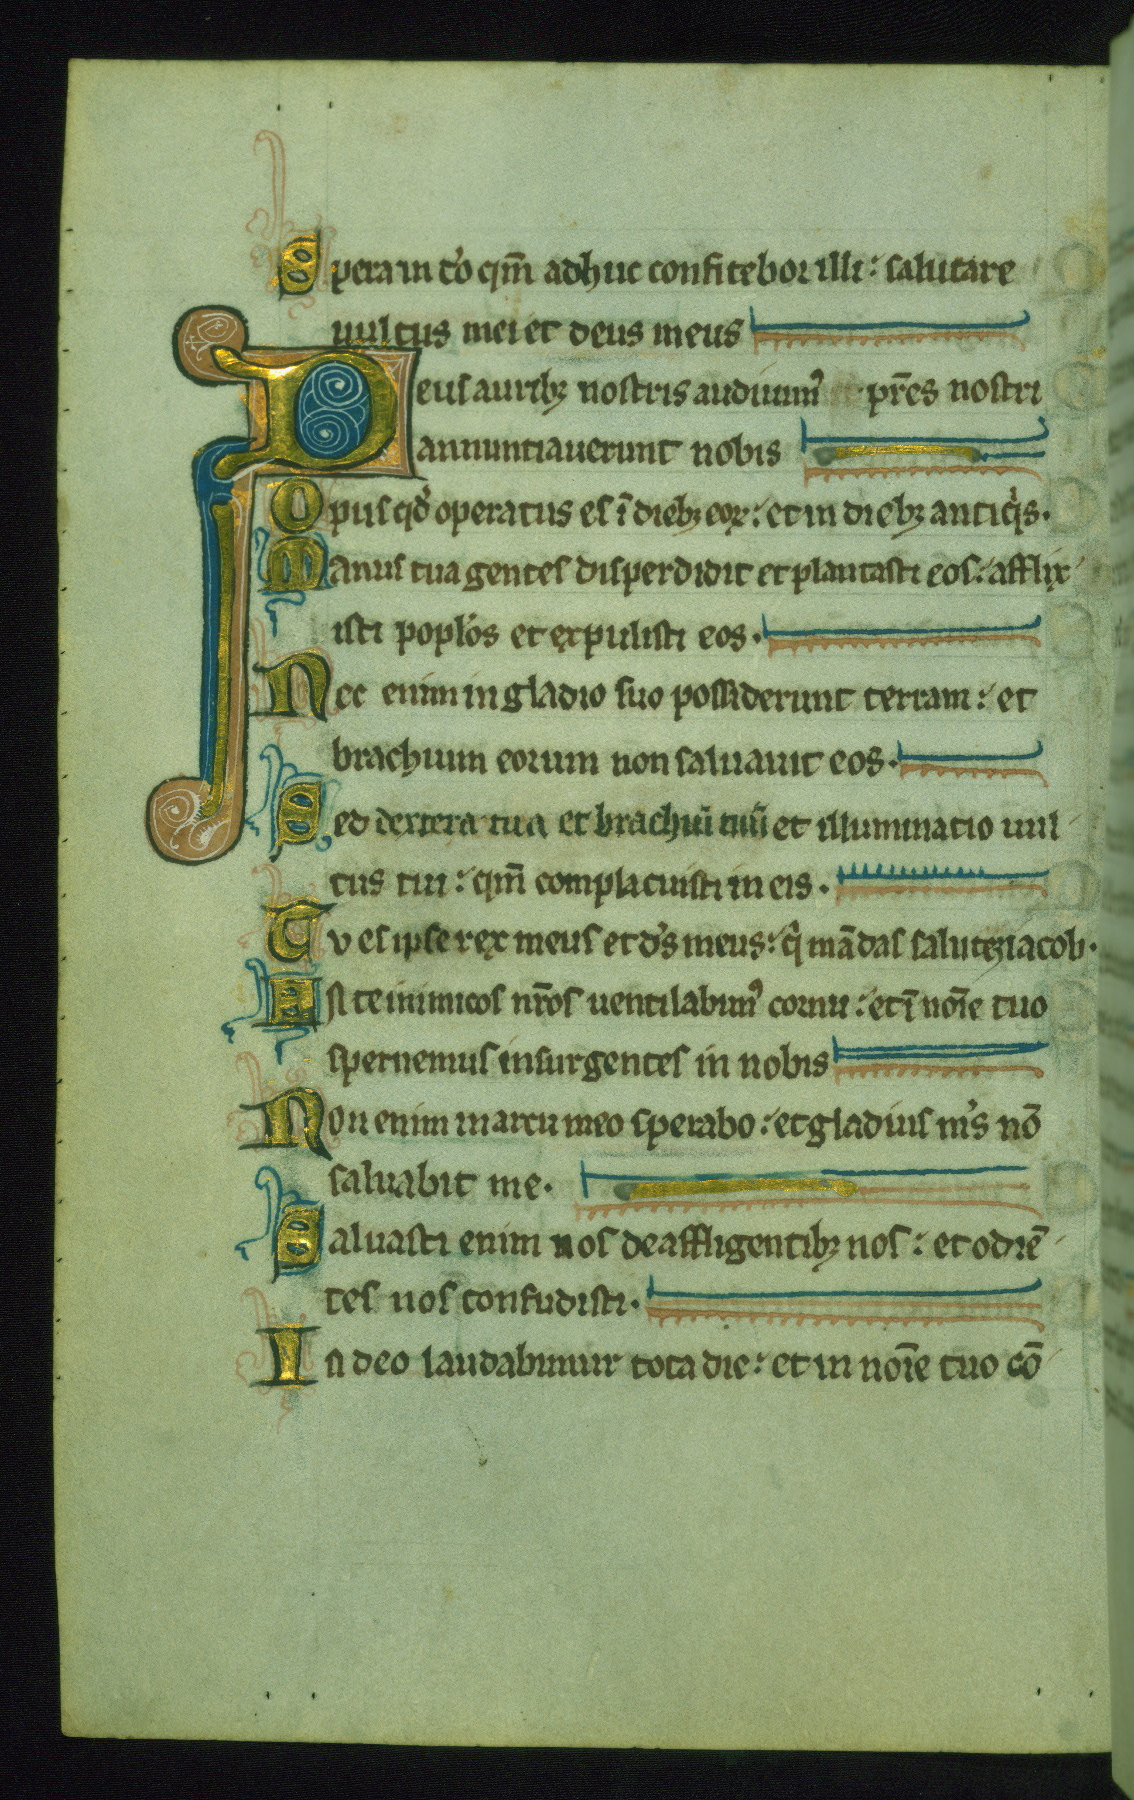 Spera in do qm̄ adhuc confitebor illi: salutare
uultus mei et deus meus
Deus auribꝫ nostris audiuimꝰ pr̄es nostri
annuntiauerunt nobis
Opus qd̓ operatus es ī diebꝫ eoꝝ: et in diebꝫ antiqͥs.
Manus tua gentes disperdidit et plantasti eos: afflix
isti poplos et expulisti eos.
Nec enim in gladio suo possiderunt terram: et
brachium eorum non saluauit eos.
Sed dextera tua et brachiū tuū et illuminatio uul
tus tui: qm̄ complacuisti in eis.
Tv es ipse rex meus et ds̓ meus: qͥ mādas saluteꝫ iacob.
In te inimicos nr̄os uentilabimꝰ cornu: et ī noīe tuo
spernemus insurgentes in nobis
Non enim in arcu meo sperabo: et gladius ms̓ nō
saluabit me.
Saluasti enim nos de affligentibꝫ nos: et odiē
tes nos confudisti.
In deo laudabimur tota die: et in noīe tuo cō